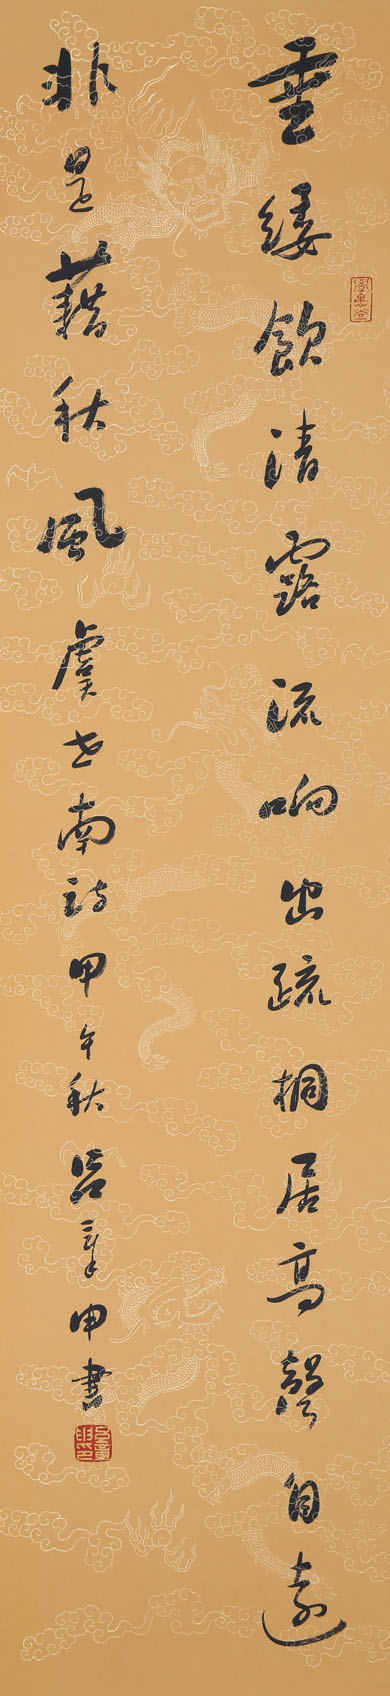 垂緌飲清露流响出疏桐居高聲自遠
非是藉秋風虞世南詩甲午秋呂章申書
呂章申印